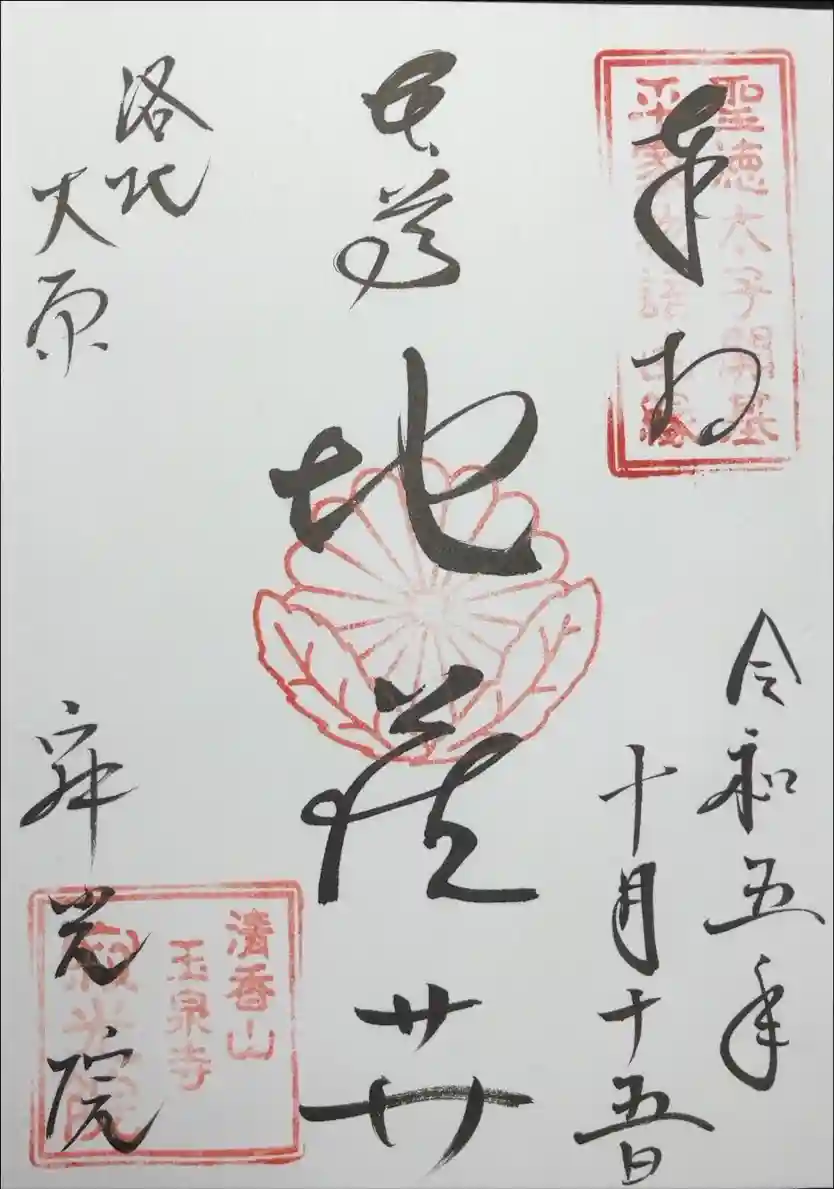 奉拝
聖徳太子開基
平家物語由縁
令和五年
十月十五日
本尊
地蔵菩薩
洛北
大原
寂光院
清香山
玉泉寺
寂光院